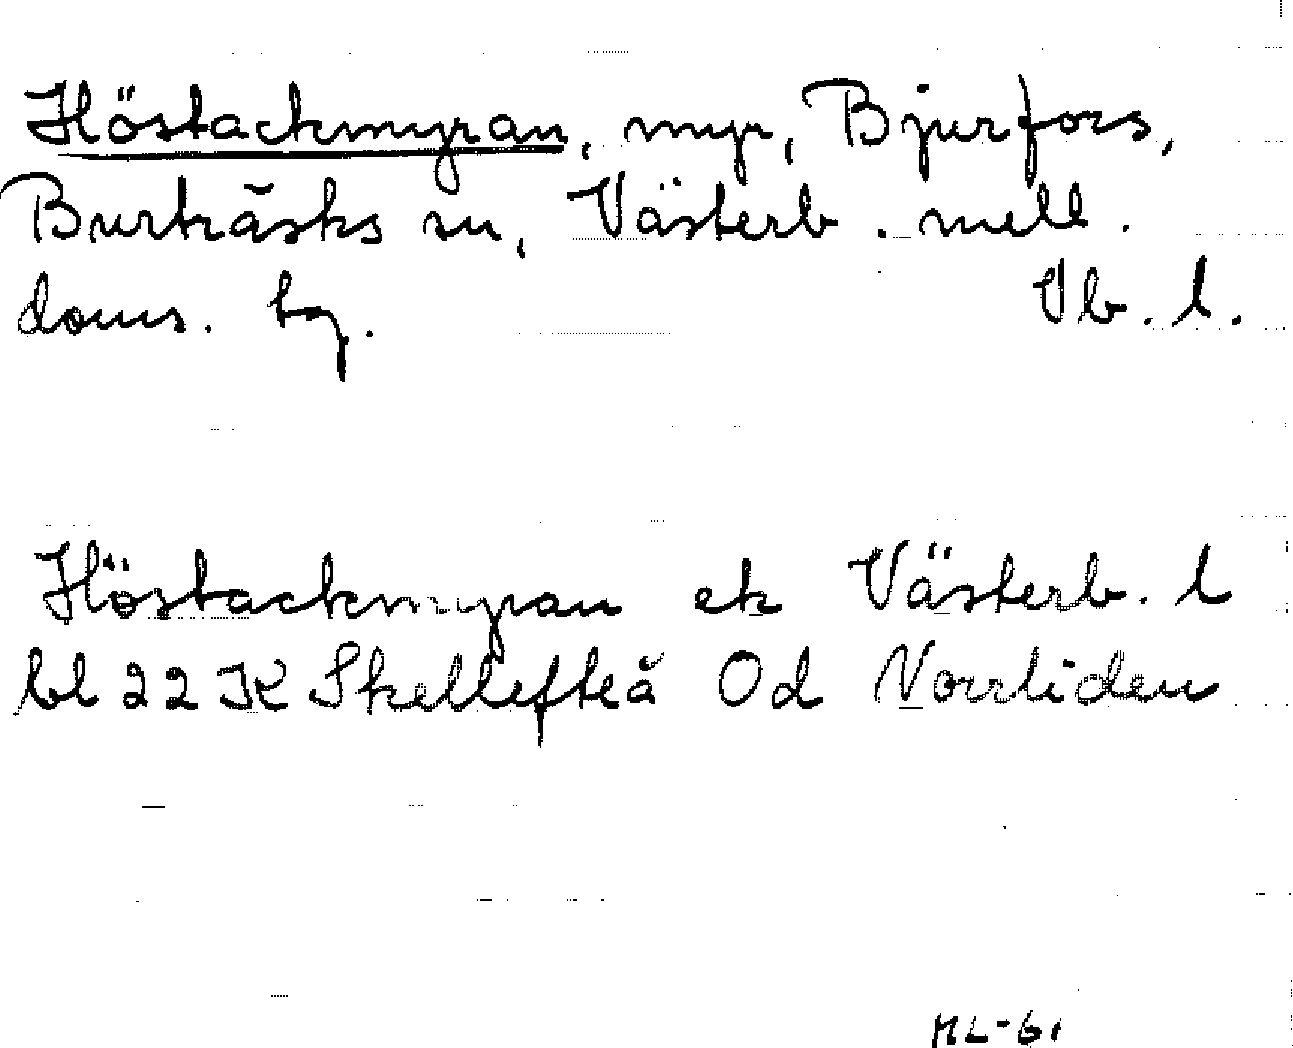 Höstackmyran, myr, Bjurfors,
Burträsks sn, Västerb. mell.
doms. tg. Vb. l.
Höstackmyran ek Västerb. l
bl 22 JK Skellefteå Od Norrliden
ML-61